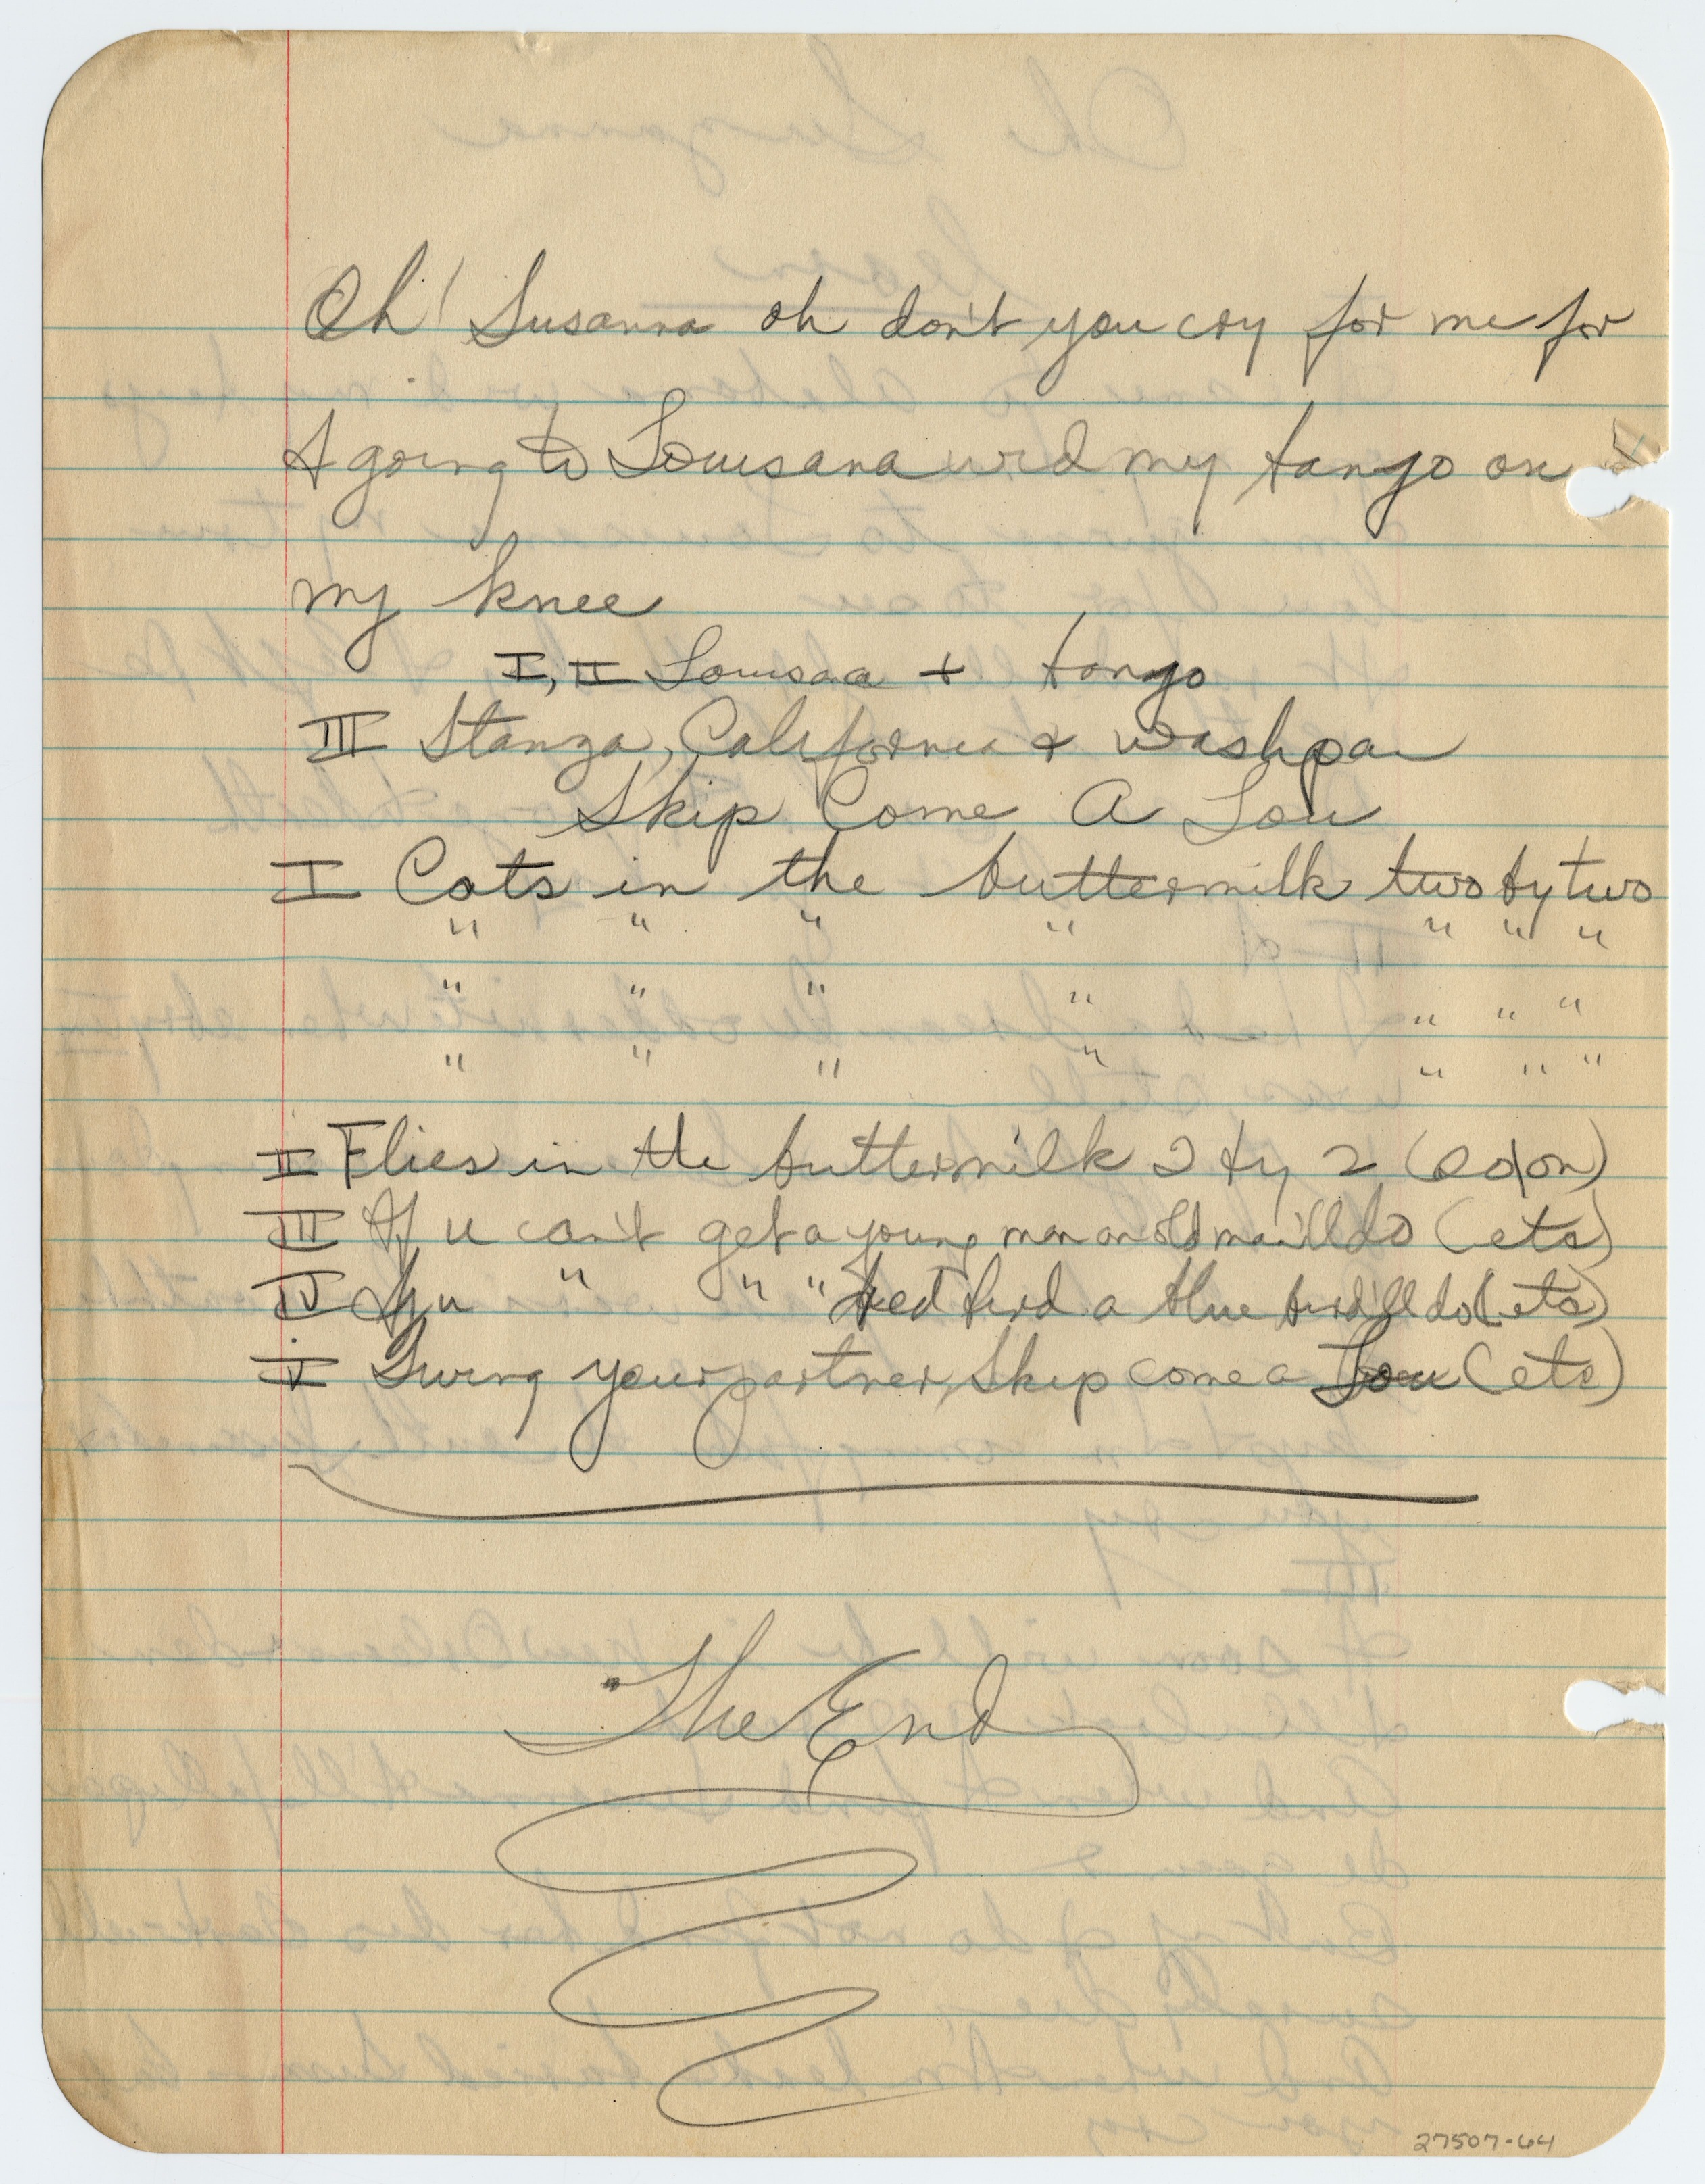 Oh! Susanna oh don't you cry for me for
I going to Lousana wid my tango on
my knee
I, II Lousaa + tango
III Stanza, California & washpan
Skip Come A Lou
I Cats in the buttermilk two by two
" " " " " " "
" " " " " " "
" " " " " " "
II Flies in the buttermilk 2 by 2 (
III If u can't get a young man an old man'll do (etc)
IV If u " " " red bird a blue bird'll do (etc)
V Swing your partner, Skip come a Lou (etc)
The End
27507-64